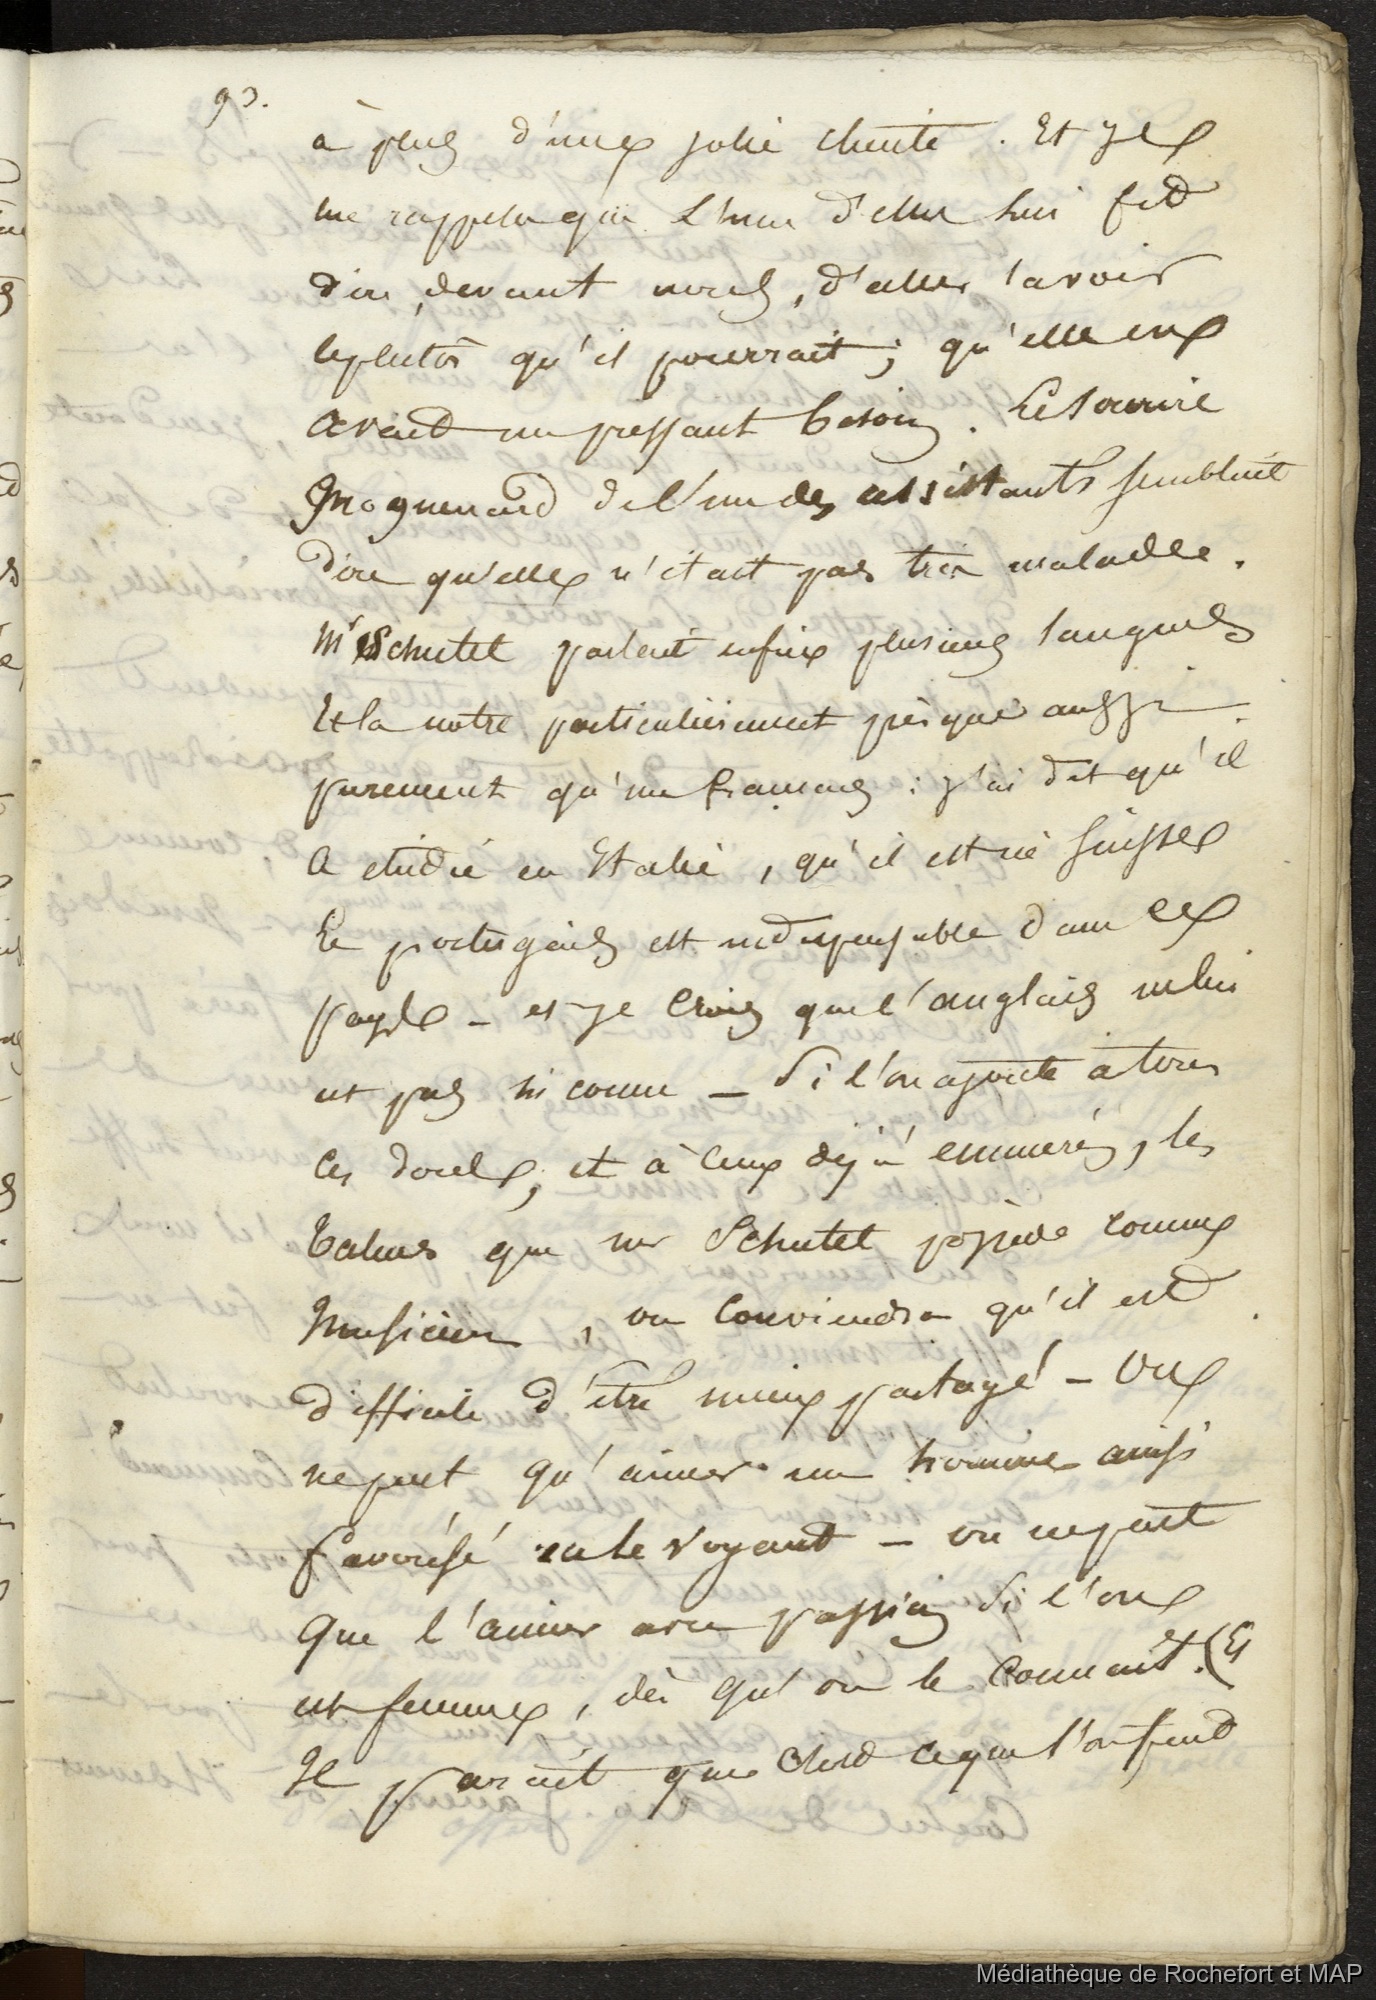 93.
à plus d'une jolie cliente. Et je
me rappele que l'une d'elles lui fit
dire, devant nous, d'aller la voir
leplutôt qu'il pourrait; qu'elle en
avait un pressant besoin. Le sourire
goguenard de l'un des assistants semblait
dire qu'elle n'était pas très malade.
Mr Schutel parlait enfin plusieurs langues
Et la notre particulièrement presque aussi
purement qu'un français: j'ai dit qu'il
a étudié en Italie, qu'il est né suisse
Le portugais est indispensable dans ce
pays - et je crois que l'anglais ne lui
est pas inconnu - Si l'on ajoute à tous
ces dons, et à ceux déjà enumerés, les
talens que mr Schutel possède comme
musicien, on conviendra qu'il est
difficile d'être mieux partagé - On
ne peut qu'aimer un homme ainsi
favorisé en le voyant - on ne peut
que l'aimer avec passion si l'on
est femme, dès qu'on le connait. (Et
Il parait que c'est ce que l'on fait
Médiathèque de Rochefort et MAP